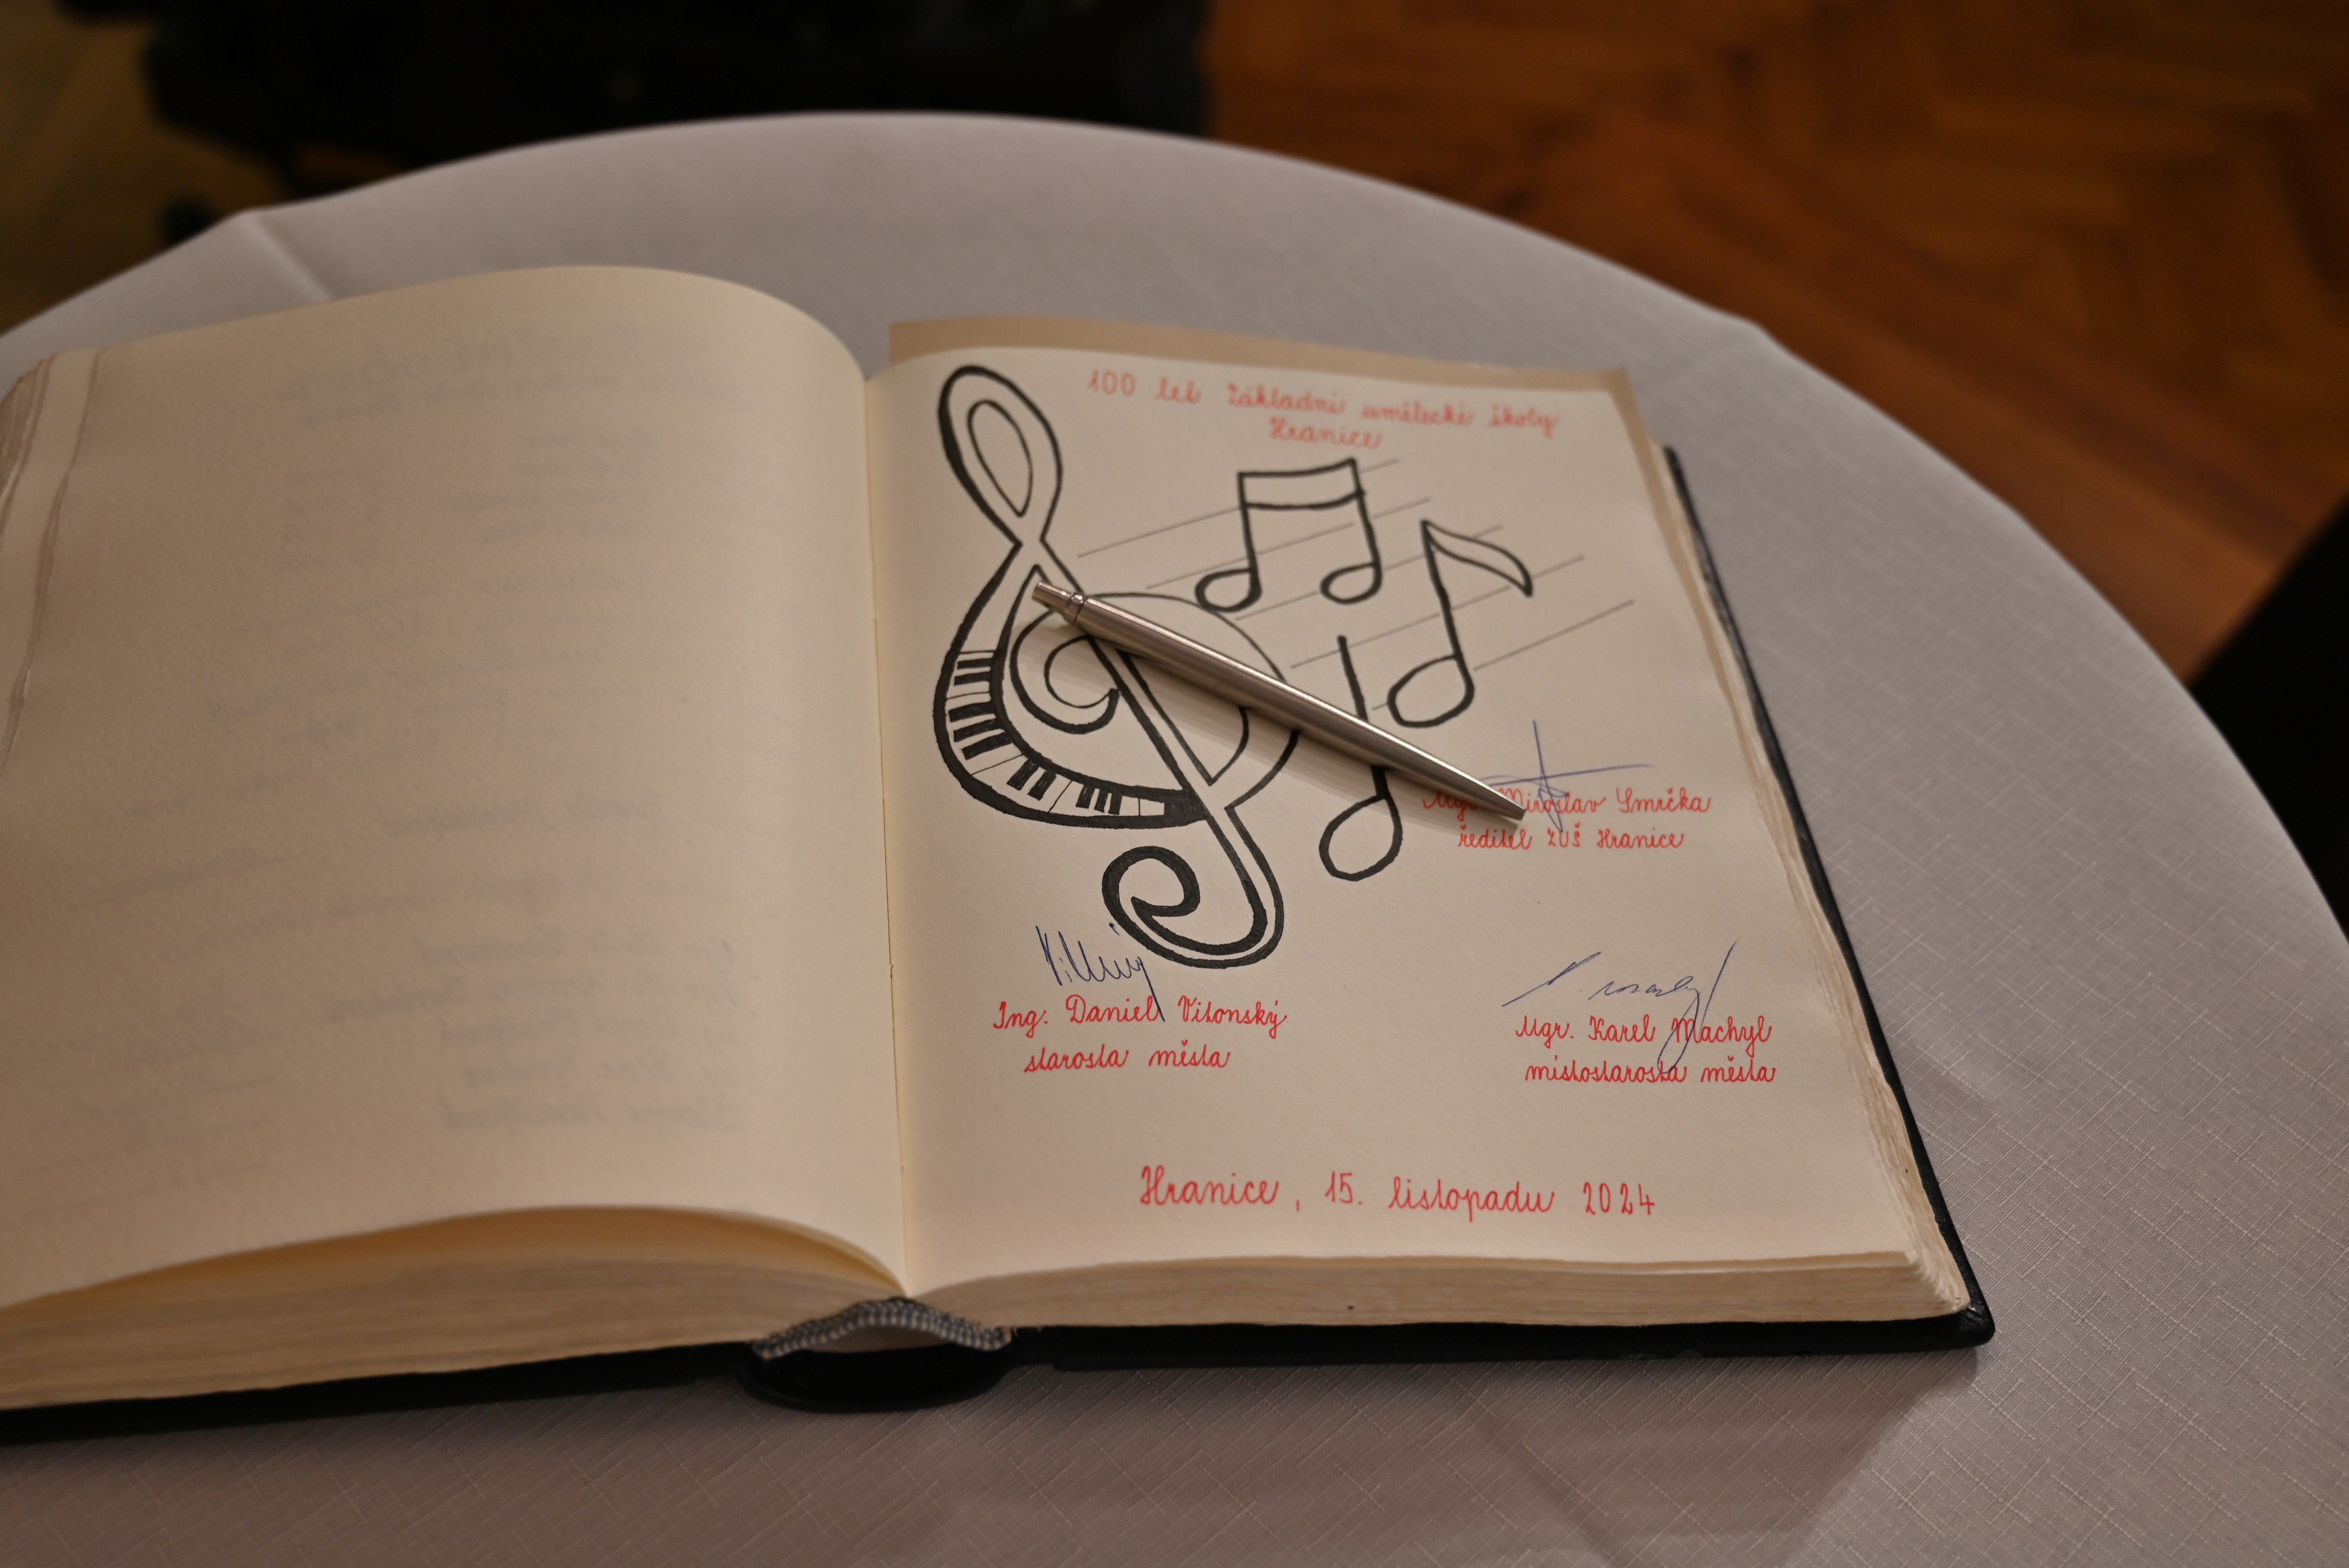 100 let Základní umělecké školy
Hranice
Mgr. Miroslav Smrčka
ředitel ZUŠ Hranice
Ing. Daniel Vitonský
starosta města
Mgr. Karel Machyl
místostarosta města
Hranice, 15. listopadu 2024